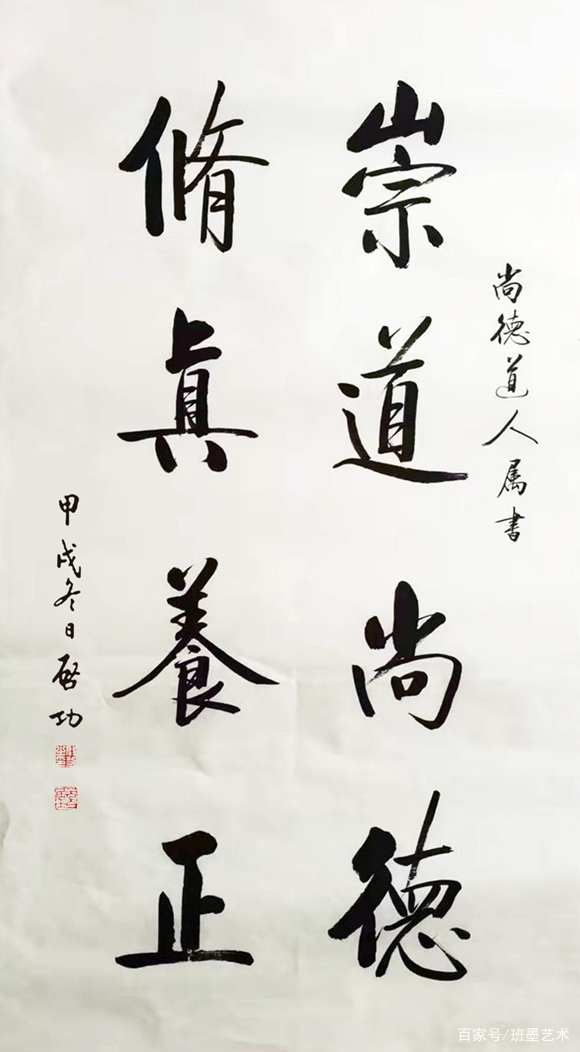 尚德道人属書
崇道尚德
脩真養正
甲戌冬日启功
百家号/班墨艺术